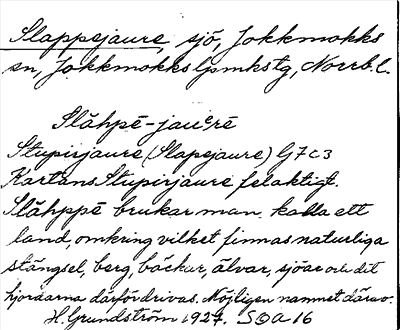 Slappejaure, sjö, Jokkmokks
sn, Jokkmokks lpmkstg, Norrb. l.
Slåhpē-jauᵉrē
Stupirjaure (Slapejaure) G7c3
Kartans Stupirjaure felaktigt.
Slåhppē brukar man kalla ett
land, omkring vilket finnas naturliga
stängsel, berg, bäckar, älvar, sjöar och dit
hjordarna därför drivas. Möjligen namnet därav.
H. Grundström 1927. SOA 16